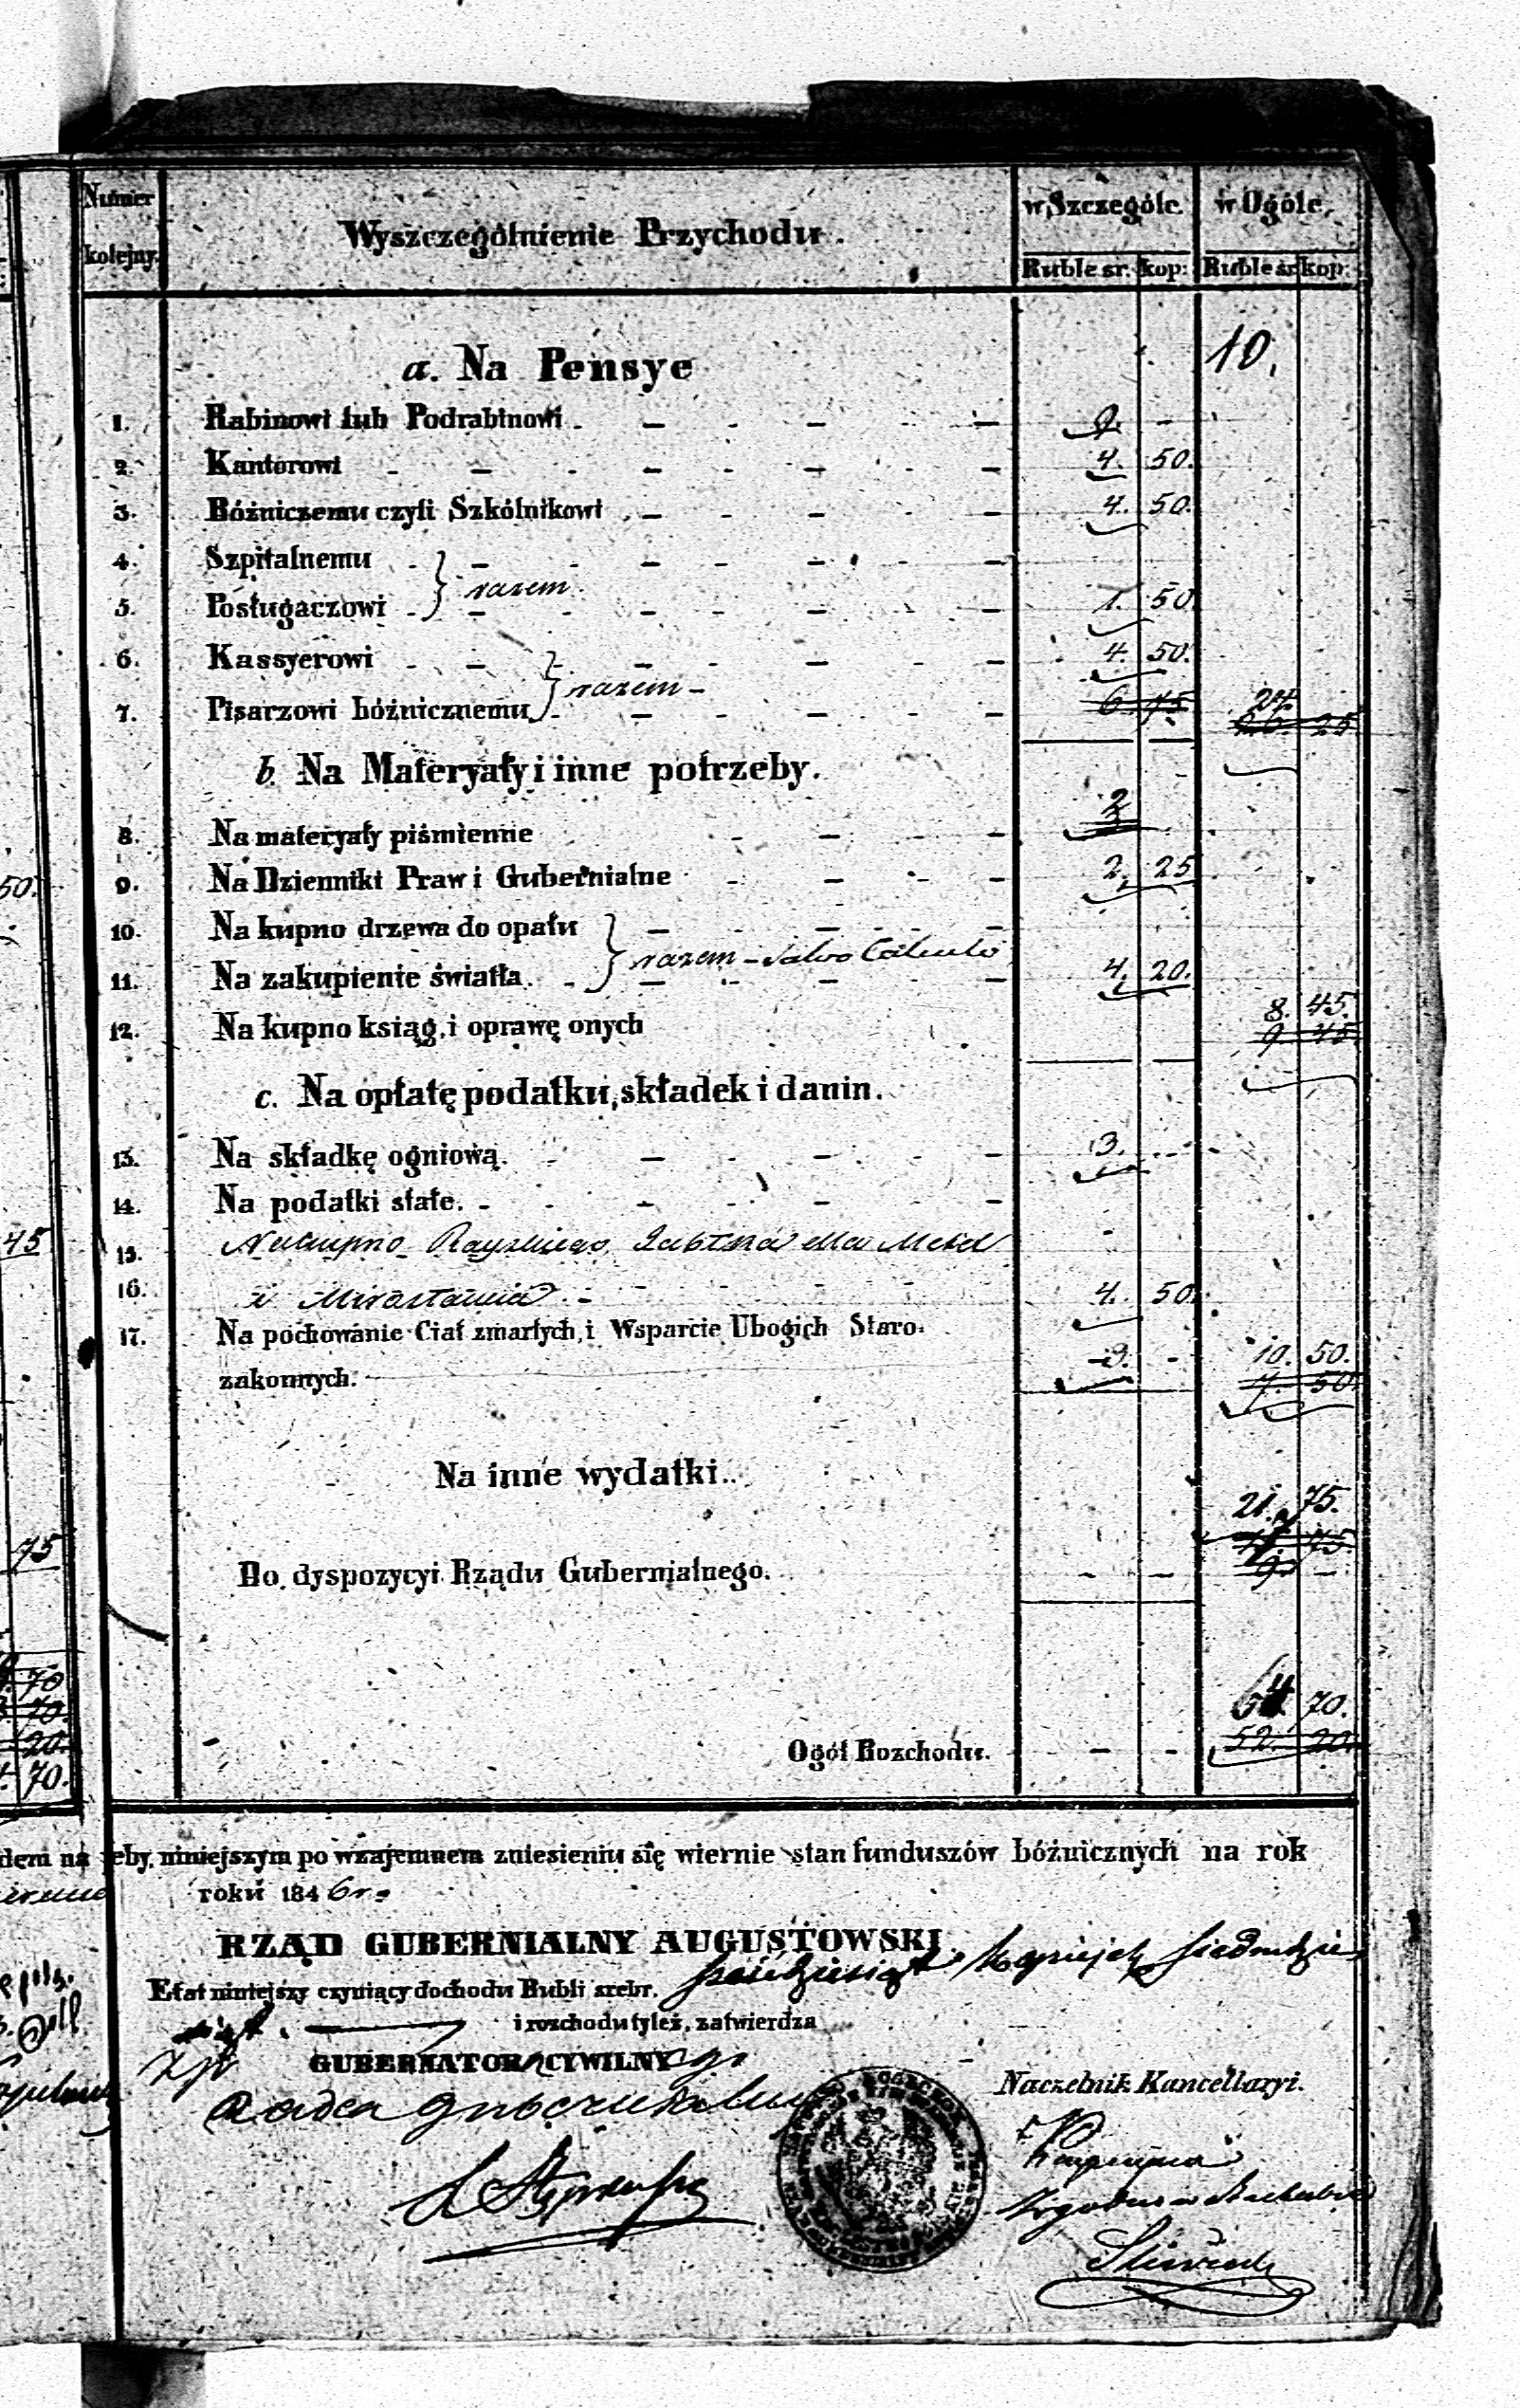 Numer kolejny.
Wyszczególnienie Przychodu.
w Szczególe.
w Ogóle.
Ruble sr. kop:
Ruble sr. kop:
10.
a. Na Pensye
1. Rabinowi lub Podrabinowi 9. -
2. Kantorowi 4. 50.
3. Bóźniczemu czyli Szkólnikowi 4. 50.
4. Szpitalnemu
razem
5. Posługaczowi 1. 50.
6. Kassyerowi 4. 50.
razem
7. Pisarzowi bóźnicznemu 6. 75 24.
26. 25
b. Na Materyały i inne potrzeby.
8. Na materyały piśmienne 2
9. Na Dzienniki Praw i Gubernialne 2. 25
10. Na kupno drzewa do opału
razem - Salvo Calculo
11. Na zakupienie światła. 4. 20.
8. 45.
12. Na kupno ksiąg, i oprawę onych 9 45
c. Na opłatę podatku, składek i danin.
13. Na składkę ogniową. 3.
14. Na podatki stałe.
15. Na kupno Rayskiego Jabłka
16. i 4. 50.
17. Na pochowanie Ciał zmarłych, i Wsparcie Ubogich Staro-
zakonnych. 3. - 10. 50.
7. 50.
Na inne wydatki.
21. 75.
75.
Do dyspozycyi Rządu Gubernialnego. - - 9 -
64. 70.
Ogół Rozchodu. - - 52. 20.
50.
45
75
70
70.
20.
70.
niniejszym po wzajemnem zniesieniu się wiernie stan funduszów bóźnicznych na rok
roku 1846 r.
RZĄD GUBERNIALNY AUGUSTOWSKI.
Etat niniejszy czyniący dochodu Rubli srebr. sześćdziesiąt kopiejek siedmdzie
siąt. i rozchodu tyleż, zatwierdza
GUBERNATOR CYWILNY
Radca Gubernialny
Naczelnik Kancellaryi.